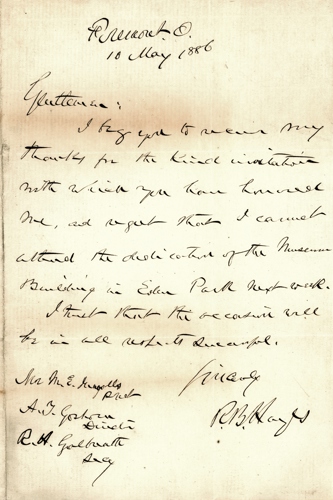 Fremont, O.
10 May 1886
Gentlemen:
I beg you to receive my
thanks for the kind invitation
with which you have honored
me, and regret that I cannot
attend the dedication of the Museum
Building in Eden Park next week.
I trust that the occasion will
be in all respects successful.
Sincerely
R.B. Hayes
Mr M. E. Ingalls
Prest
A. T. Goshorn
Director
R. H. Galbreath
Secy